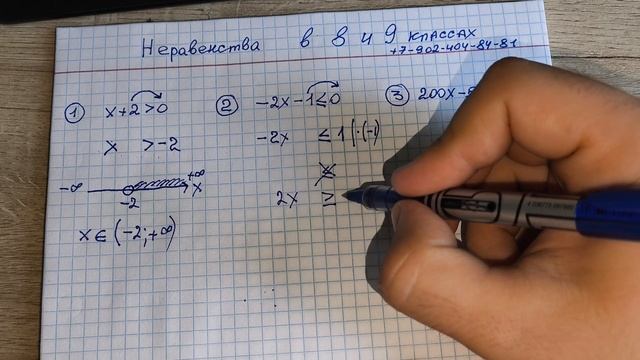 Неравенства в 8 и 9 классах
+7-902-404-84-81
① x+2>0
x >-2
-∞ +∞
-2 x
x∈(-2;+∞)
② -2x-1≤0
-2x ≤1 |·(-1)
2x ≥
③ 200x-